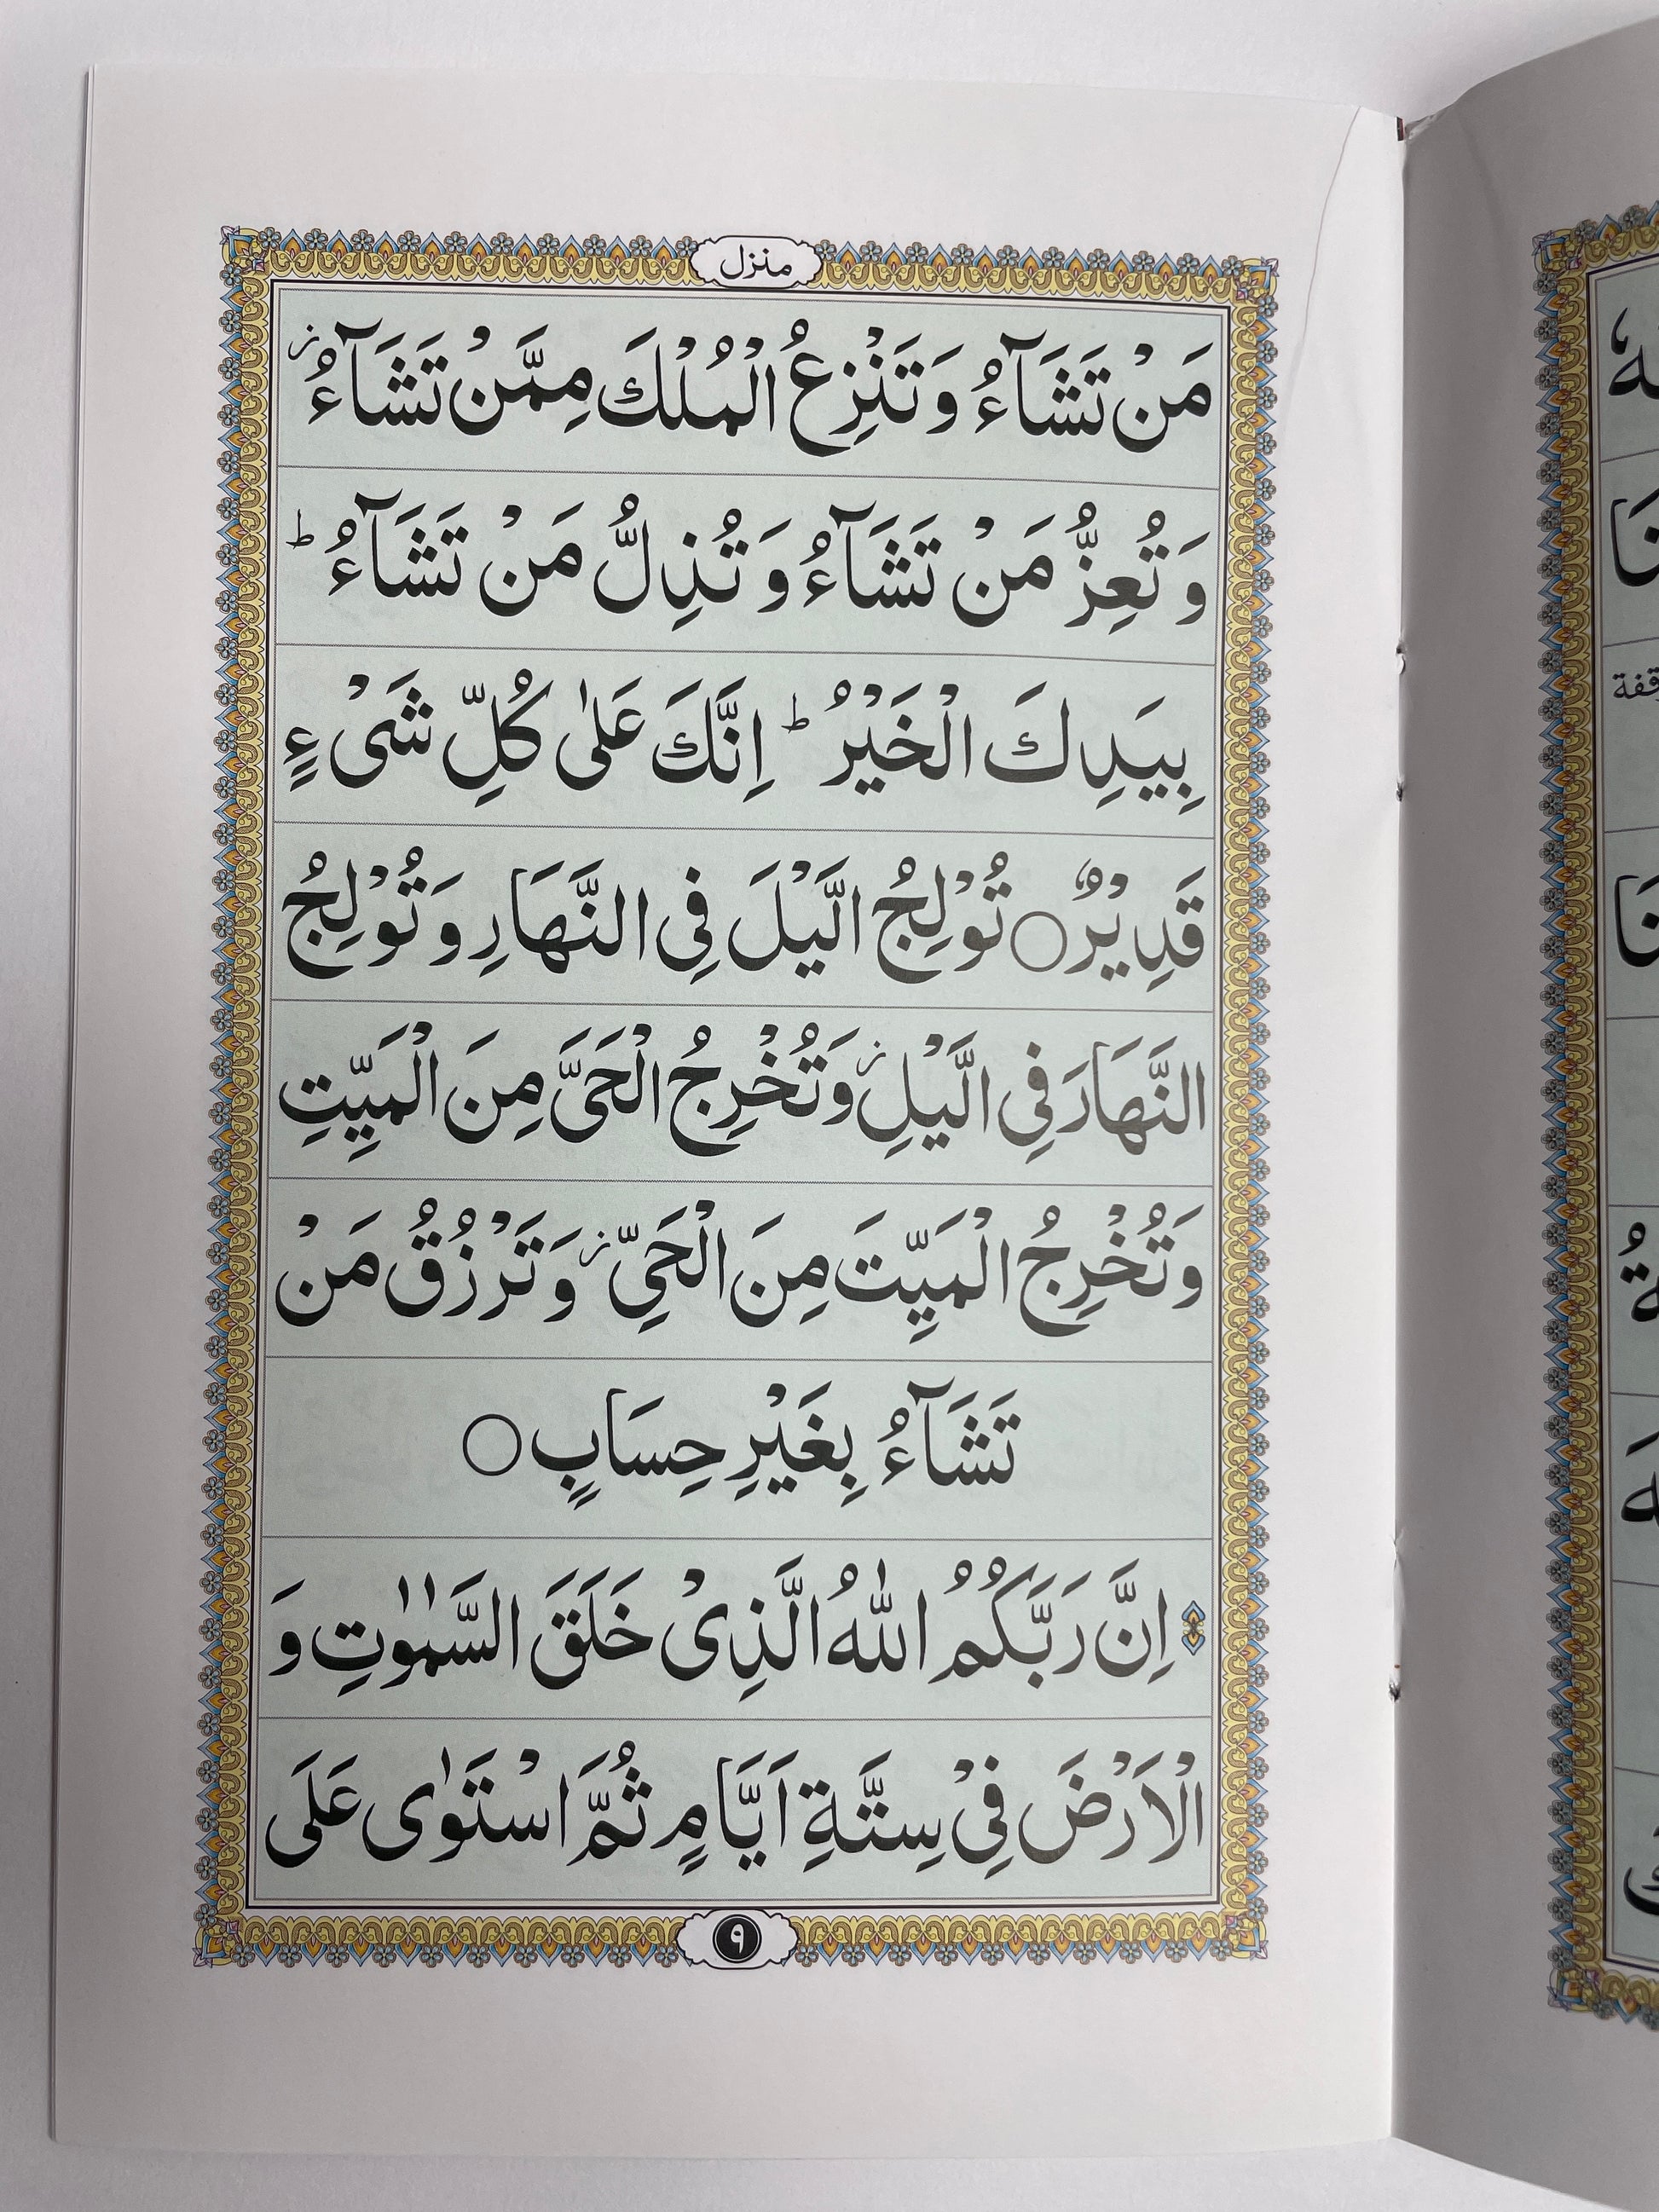 منزل
مَنْ تَشَآءُ وَتَنْزِعُ الْمُلْكَ مِمَّنْ تَشَآءُ ز
وَ تُعِزُّ مَنْ تَشَآءُ وَ تُذِلُّ مَنْ تَشَآءُ ط
بِيَدِكَ الْخَيْرُ ط اِنَّكَ عَلٰى كُلِّ شَىْءٍ
قَدِيْرٌ ○ تُوْلِجُ الَّيْلَ فِى النَّهَارِ وَ تُوْلِجُ
النَّهَارَ فِى الَّيْلِ ز وَ تُخْرِجُ الْحَىَّ مِنَ الْمَيِّتِ
وَ تُخْرِجُ الْمَيِّتَ مِنَ الْحَىِّ ز وَ تَرْزُقُ مَنْ
تَشَآءُ بِغَيْرِ حِسَابٍ ○
اِنَّ رَبَّكُمُ اللّٰهُ الَّذِىْ خَلَقَ السَّمٰوٰتِ وَ
الْاَرْضَ فِىْ سِتَّةِ اَيَّامٍ ثُمَّ اسْتَوٰى عَلَى
٩